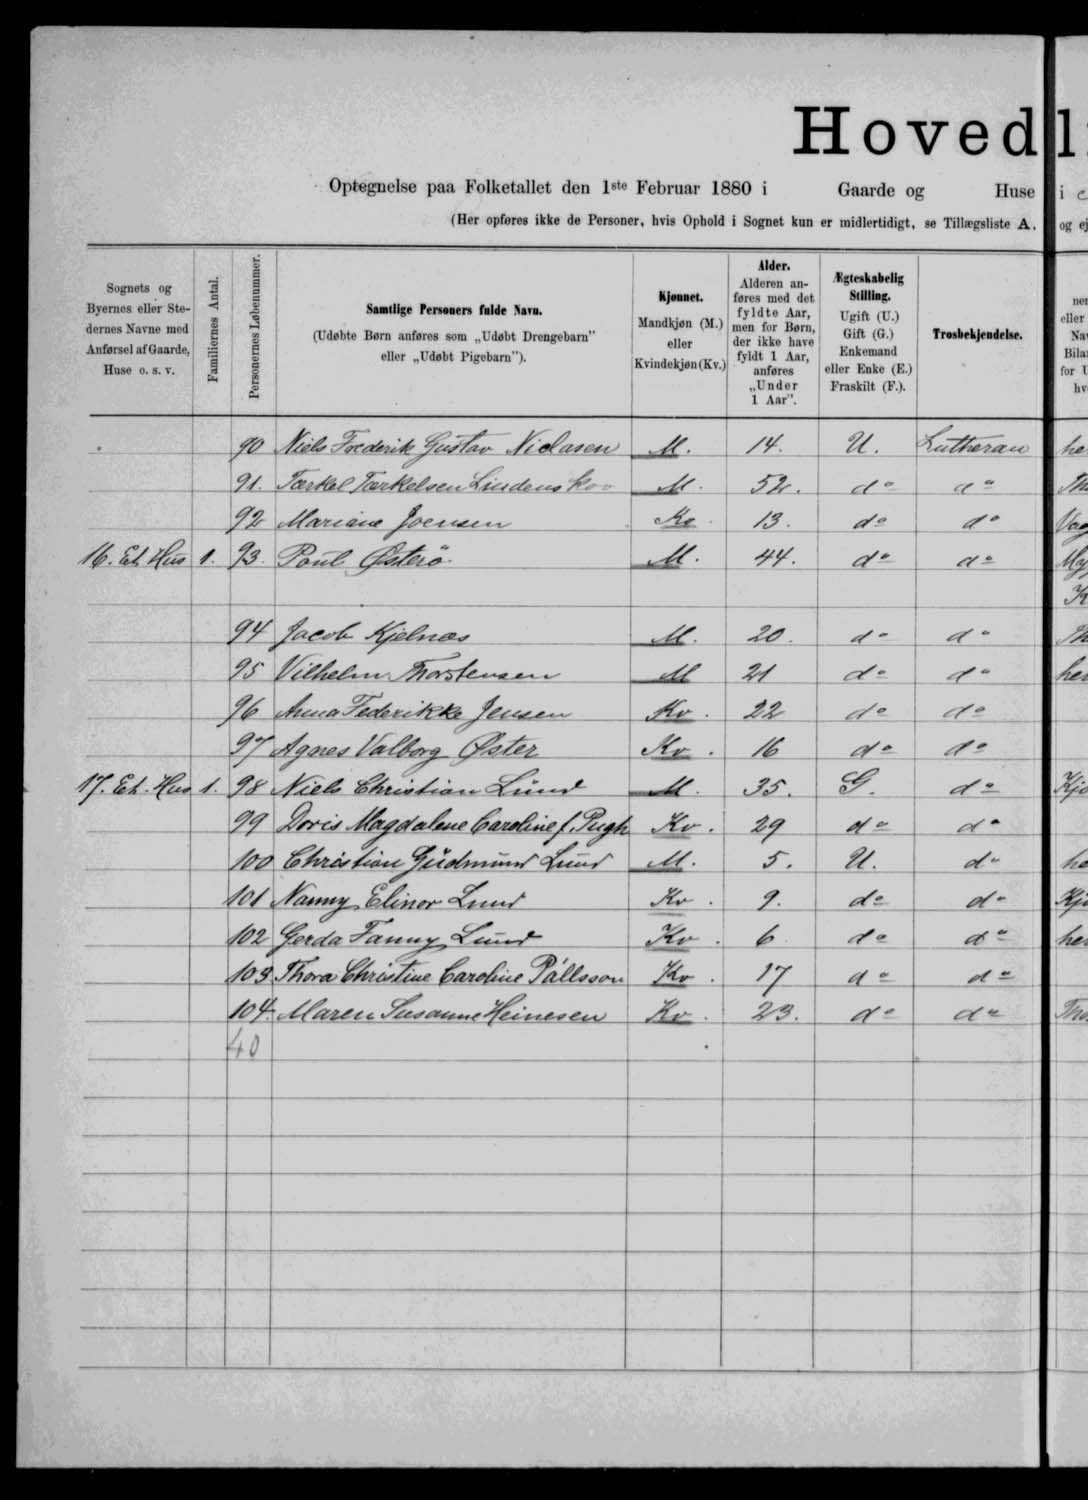 Hoved
Optegnelse paa Folketallet den 1ste Februar 1880 i Gaarde og Huse i
(Her opføres ikke de Personer, hvis Ophold i Sognet kun er midlertidigt, se Tillægsliste A. og ej
Sognets og Byernes eller Stedernes Navne med Anførsel af Gaarde, Huse o. s. v.
Familiernes Antal.
Personernes Løbenummer.
Samtlige Personers fulde Navn.
(Udøbte Børn anføres som „Udøbt Drengebarn"
eller „Udøbt Pigebarn").
Kjønnet.
Mandkjøn (M.)
eller
Kvindekjøn (Kv.)
Alder.
Alderen anføres med det fyldte Aar, men for Børn, der ikke have fyldt 1 Aar, anføres „Under 1 Aar".
Ægteskabelig Stilling.
Ugift (U.)
Gift (G.)
Enkemand
eller Enke (E.)
Fraskilt (F.).
Trosbekjendelse.
90 Niels Frederik Gustav Niclasen M. 14. U. Lutheran
91. Tarkel Tarkelsen Lindenskov M. 52. do do
92 Mariane Joensen Kv. 13. do do
16. Et Hus 1. 93. Poul Østerö. M. 44. do do
94 Jacob Kjelnæs M. 20. do do
95 Vilhelm Thorstensen M 21 do do
96 Anna Federikke Jensen Kv. 22 do do
97 Agnes Valborg Øster Kv. 16 do do
17. Et. Hus 1. 98 Niels Christian Lund M. 35. G. do
99 Doris Magdalene Caroline f. Pugh Kv. 29 do do
100 Christian Gudmund Lund M. 5. U. do
101 Nanny Elinor Lund Kv. 9. do do
102 Gerda Fanny Lund Kv. 6. do do
103 Thora Christine Caroline Pállsson Kv. 17 do do
104. Maren Susanne Heinesen Kv. 23. do do
40